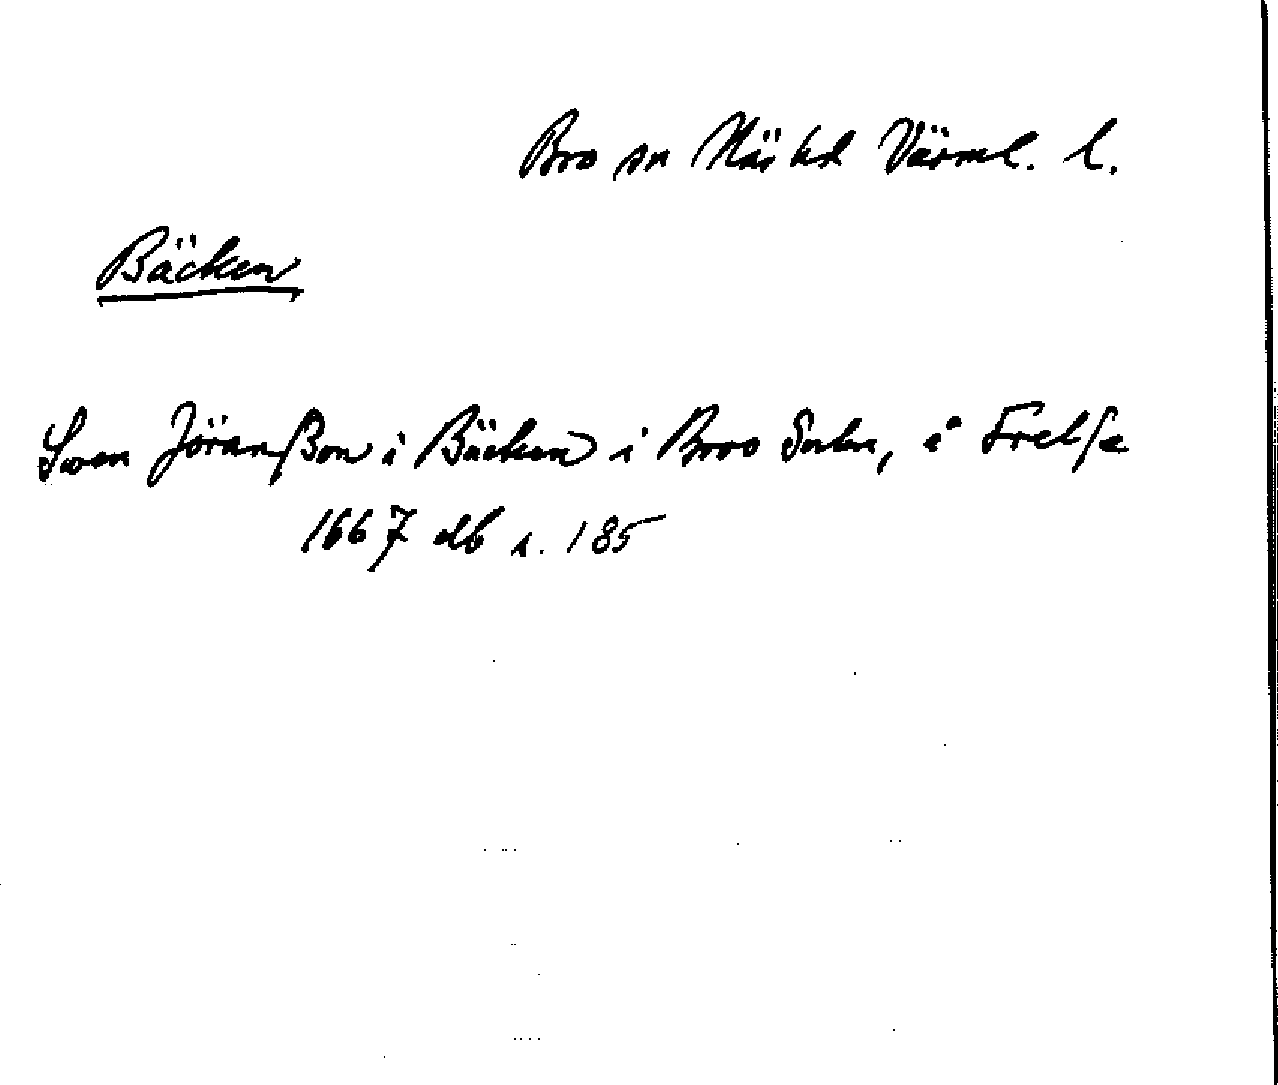 Bro sn Näs hd Värml. l.
Bäcken
Swen Jöranßon i Bäcken i Broo Sokn, å Frelse
1667 db s. 185